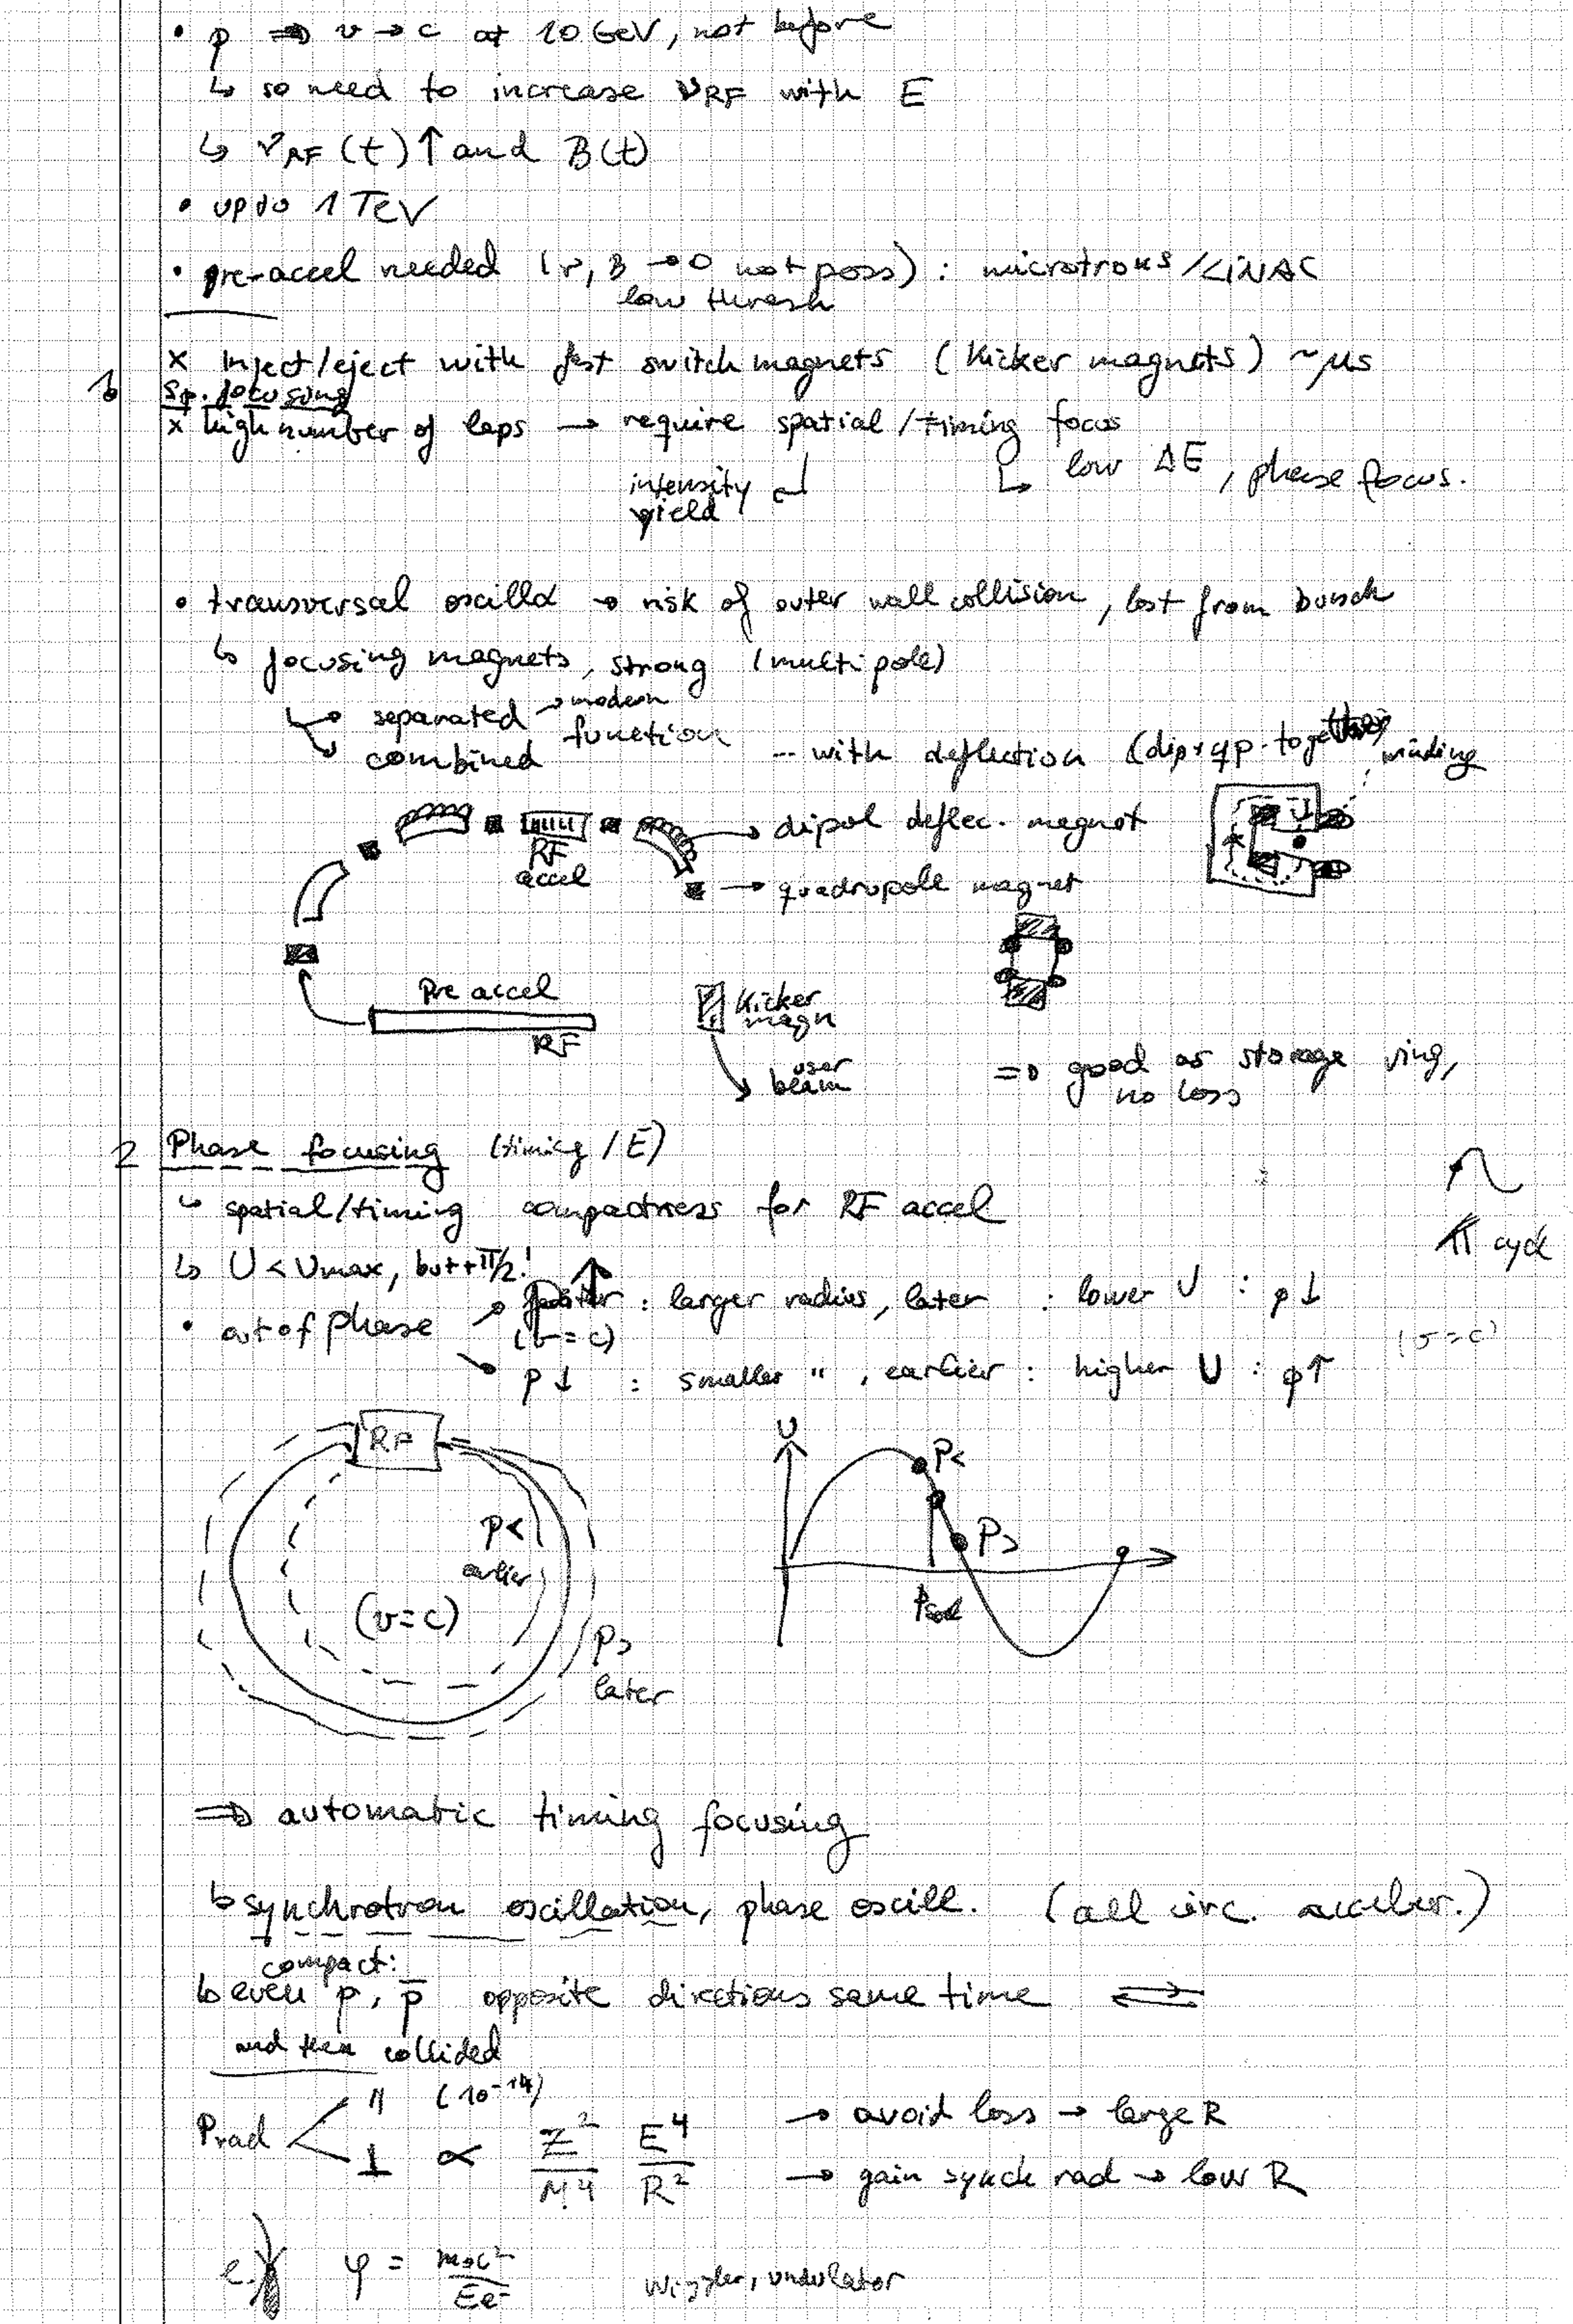 • p ⇒ v → c at 10 GeV, not before
↳ so need to increase νRF with E
↳ νRF (t) ↑ and B(t)
• up to 1 TeV
• pre-accel needed (r, B → 0 not poss) : microtrons / LINAC
low thresh
x Inject/eject with fast switch magnets (Kicker magnets) ~μs
1b Sp. focusing
x high number of laps → require spatial / timing focus
intensity yield
↳ low ΔE, phase focus.
• transversal oscillα → risk of outer wall collision, lost from bunch
↳ focusing magnets, strong (multipole)
separated → modern
combined function -- with deflection (dip+qp. together)
winding
RF accel
→ dipol deflec. magnet
→ quadrupole magnet
Pre accel
RF
Kicker magn
user beam
⇒ good as storage ring, no loss
2 Phase focusing (timing / E)
↳ spatial/timing compactness for RF accel
↳ U < Umax, but + π/2!
π cycle
• out of phase ↗ p↑ : larger radius, later : lower U : p↓
(v=c)
(v=c)
↘ p↓ : smaller " , earlier : higher U : p↑
RF
p<
earlier
(v=c)
p>
later
U
P<
P>
Psoll
⇒ automatic timing focusing
↳ synchrotron oscillation, phase oscill. (all circ. acceler.)
compact:
↳ even p, p̄ opposite directions same time ⇄
and then collided
Prad < ∥ (10⁻¹⁴)
⊥ ∝ Z²/M⁴ E⁴/R²
→ avoid loss → large R
→ gain synch rad → low R
e⁻ φ = m₀c²/Ee⁻
Wiggler, undulator